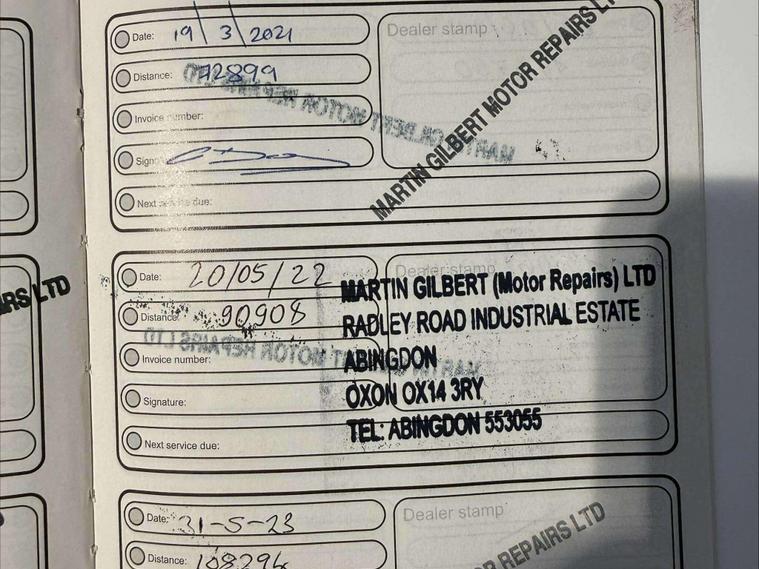 Date: 19/3/2021
Dealer stamp
Distance: 72899
MARTIN GILBERT MOTOR REPAIRS LTD
Invoice number:
Next service due:
Date: 20/05/22
Dealer stamp
MARTIN GILBERT (Motor Repairs) LTD
Distance: 90908
RADLEY ROAD INDUSTRIAL ESTATE
Invoice number:
ABINGDON
Signature:
OXON OX14 3RY
TEL: ABINGDON 553055
Next service due:
RS LTD
Date: 31-5-23
Dealer stamp
Distance: 108296
REPAIRS LTD